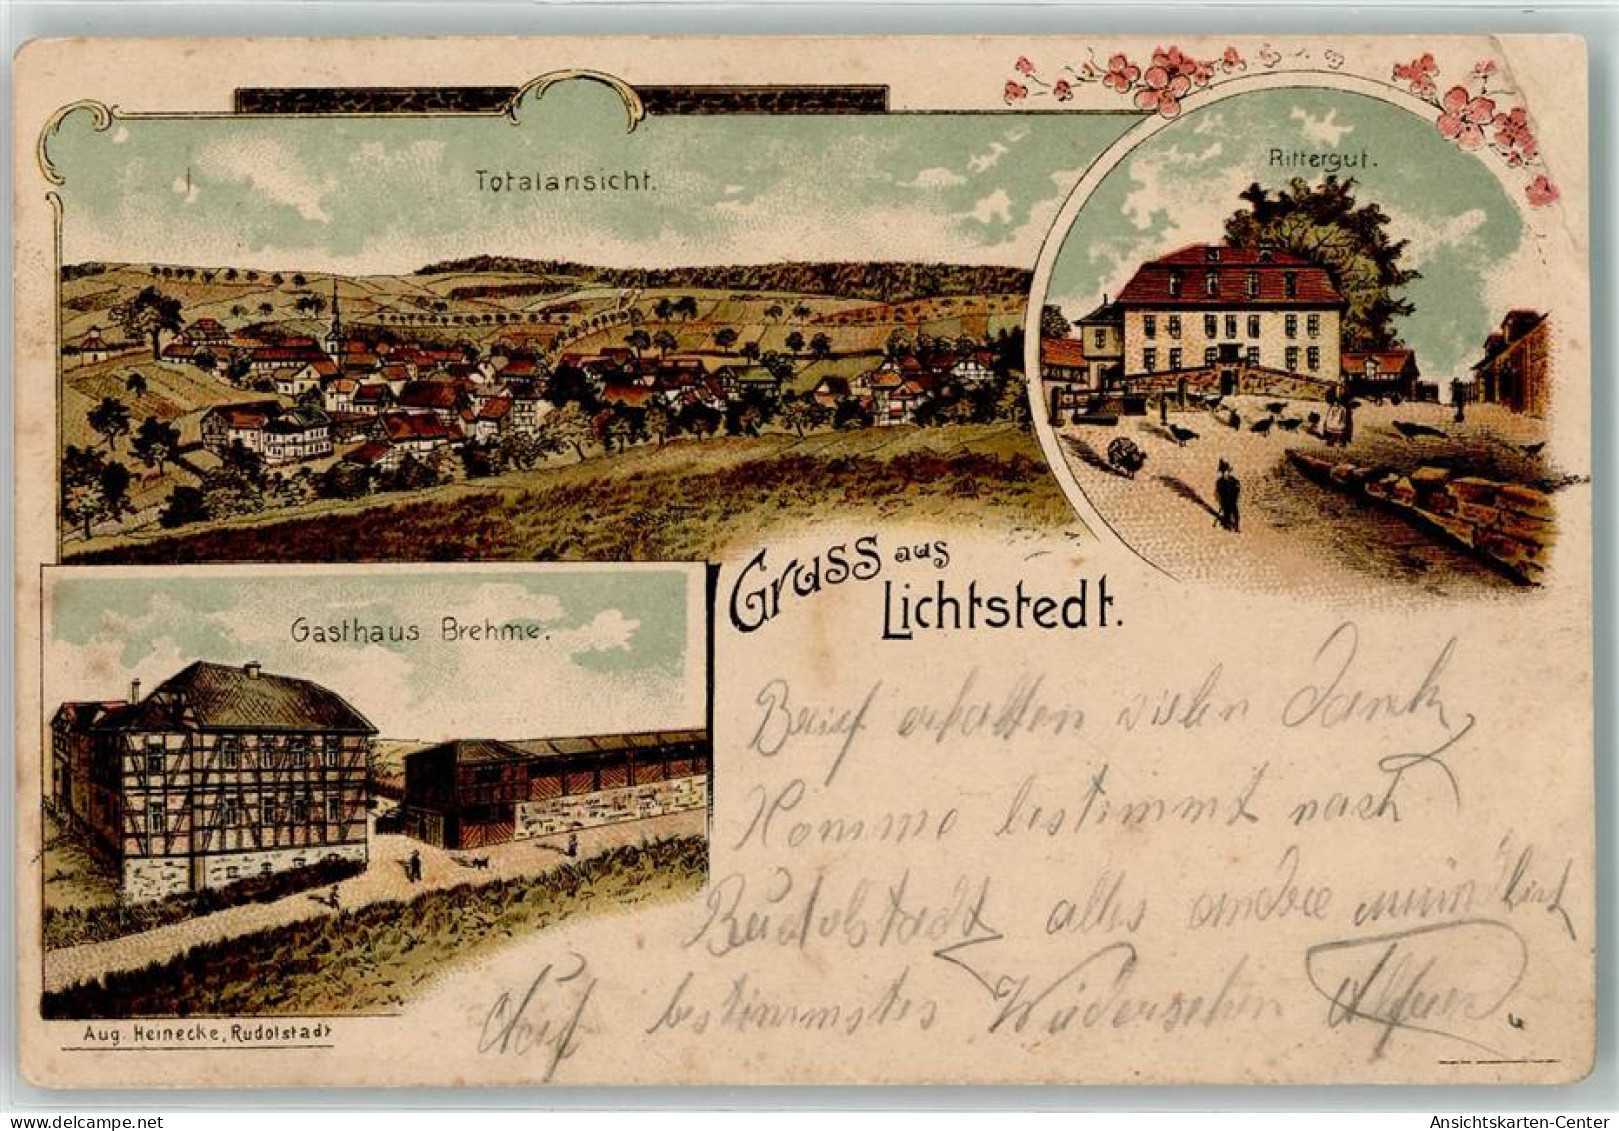 Totalansicht.
Rittergut.
Gruss aus
Lichtstedt.
Gasthaus Brehme.
Brief erhalten vielen Dank,
Komme bestimmt nach
Rudolstadt alles andre mündlich
Auf bestimmtes Wiedersehen
Aug. Heinecke, Rudolstadt
Ansichtskarten-Center